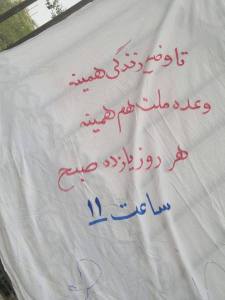 تا وضع زندگی همینه
وعده ملت هم همینه
هر روز یازده صبح
ساعت ۱۱